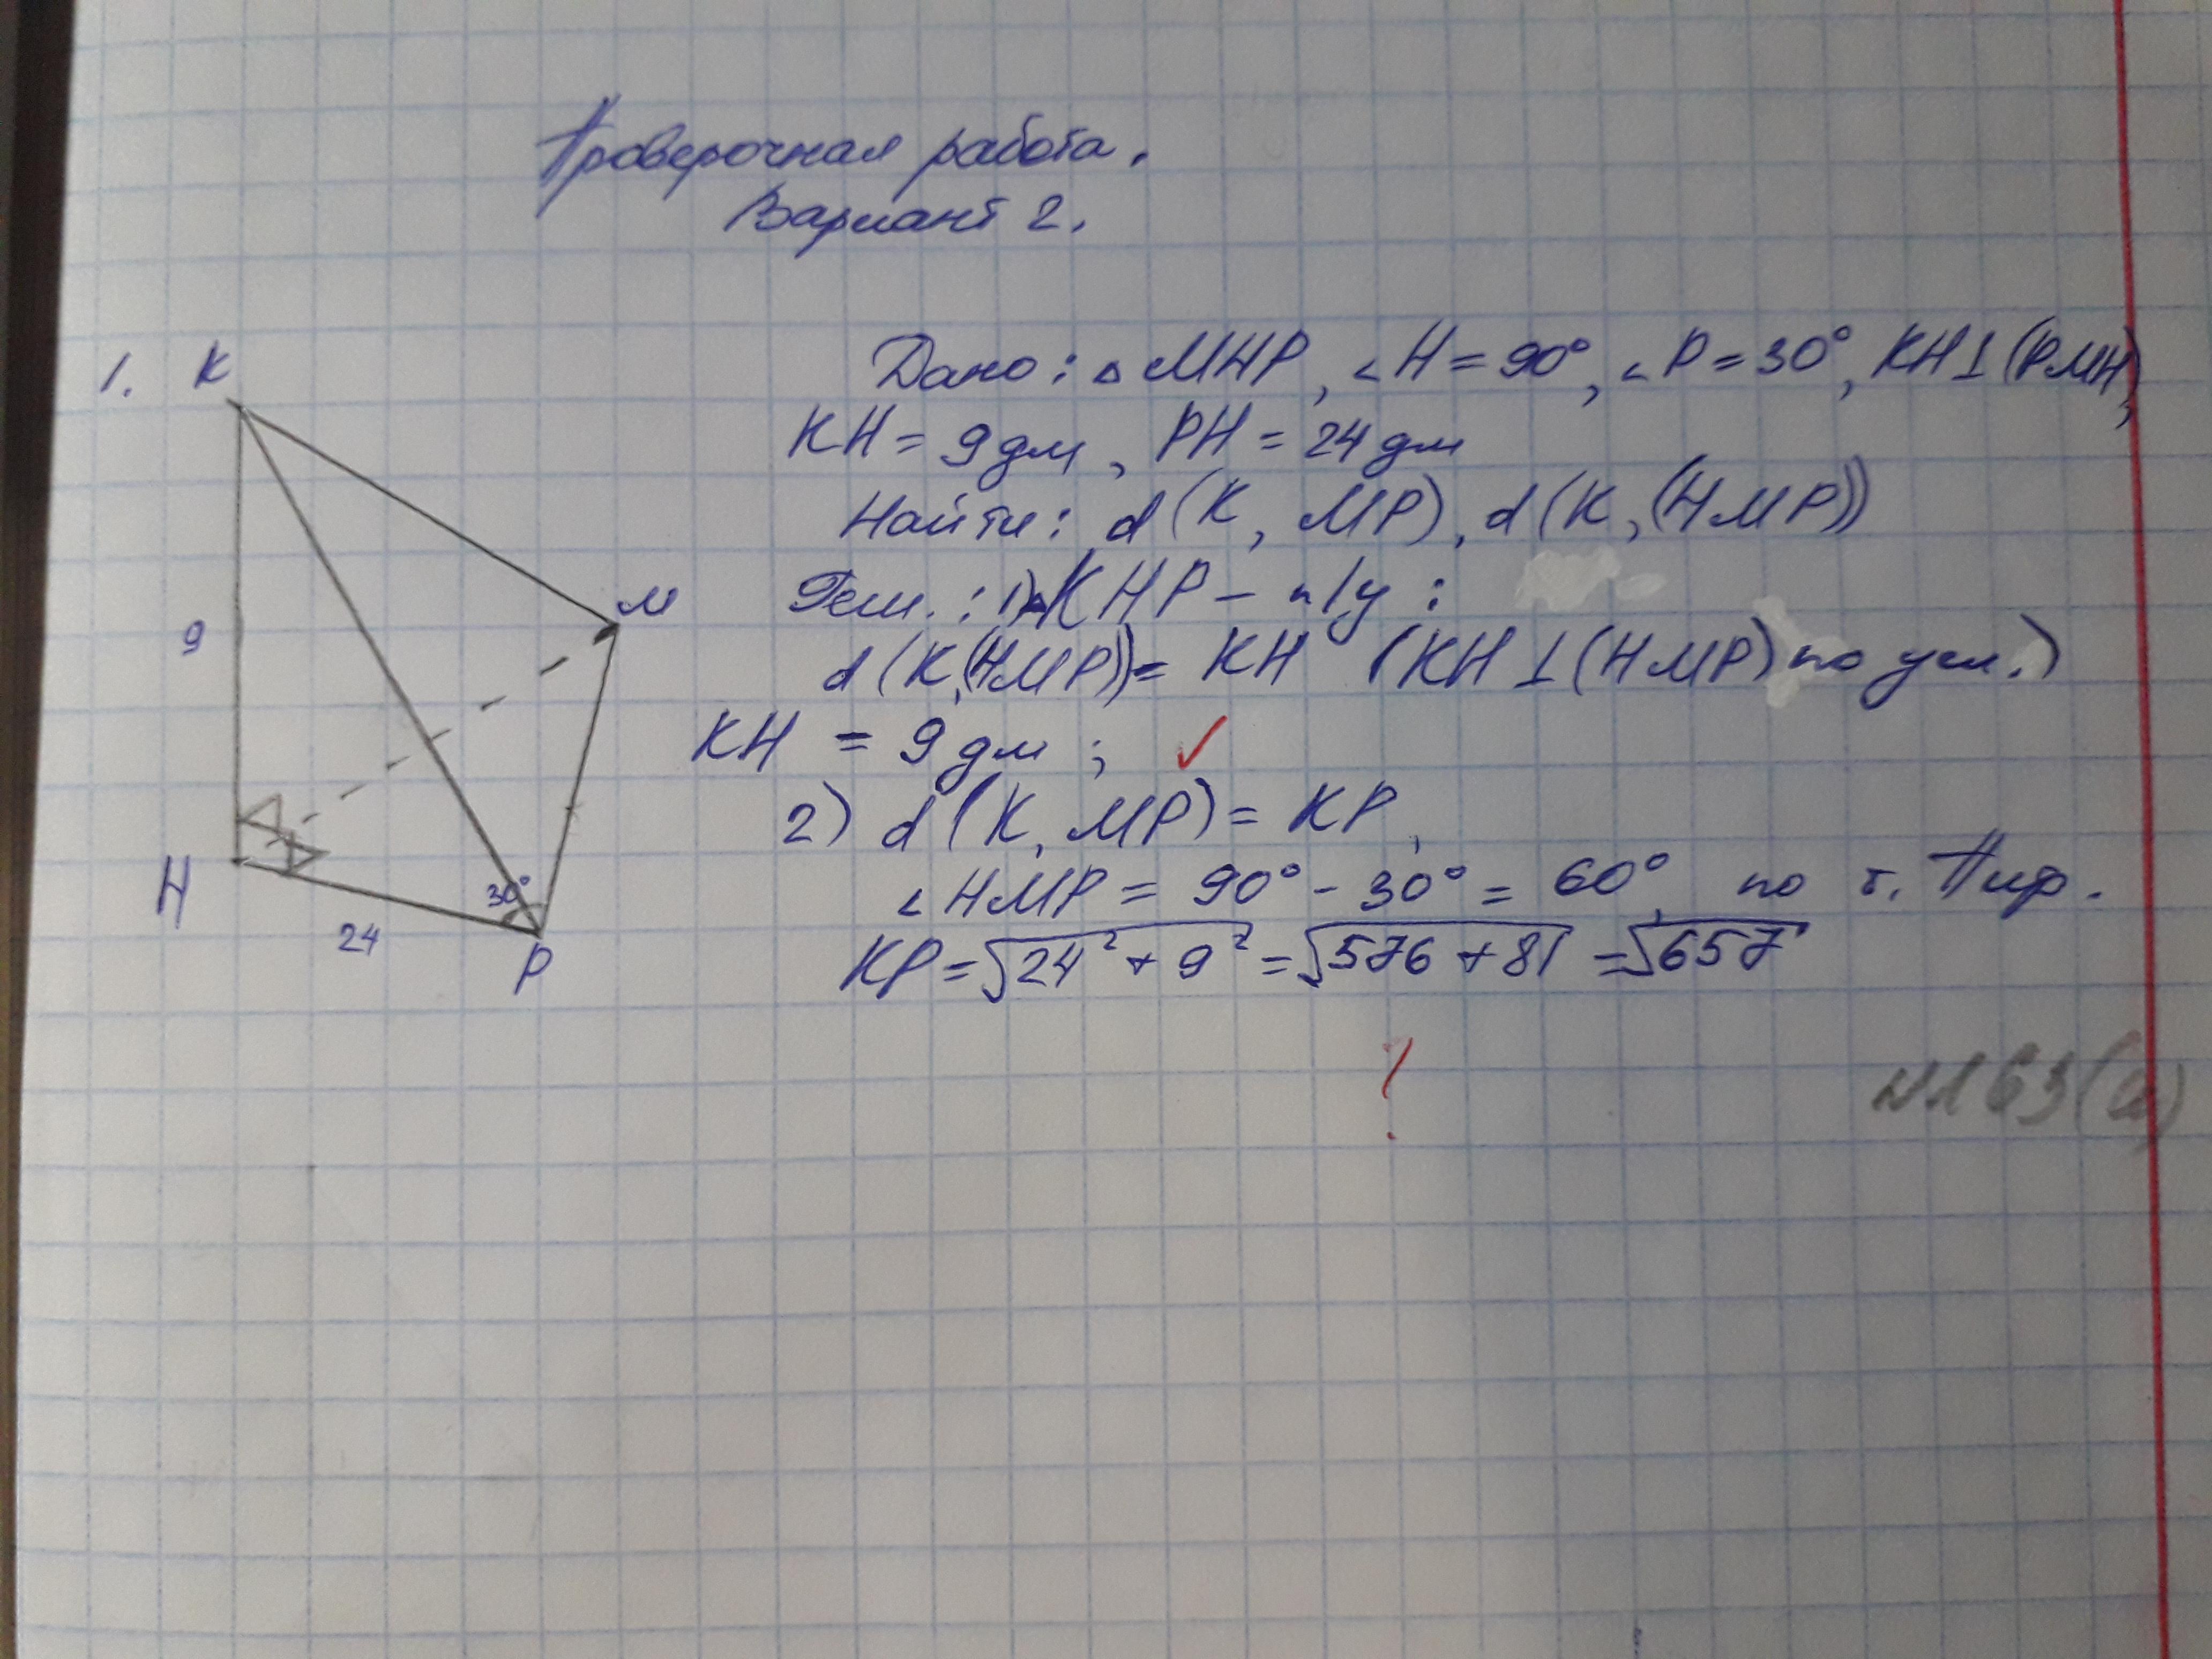 Проверочная работа.
Вариант 2.
1.
K
M
9
H
30°
24
P
Дано: ▵ MHP, ∠H = 90°, ∠P = 30°, KH ⊥ (PMH),
KH = 9 дм, PH = 24 дм
Найти: d(K, MP), d(K, (HMP))
Реш.: 1) ▵KHP – п/у:
d(K,(HMP)) = KH (KH ⊥ (HMP) по усл.)
KH = 9 дм; ✓
2) d(K, MP) = KP,
∠HMP = 90° - 30° = 60°, по т. Пиф.
KP = √24² + 9² = √576 + 81 = √657
!
№163(а)